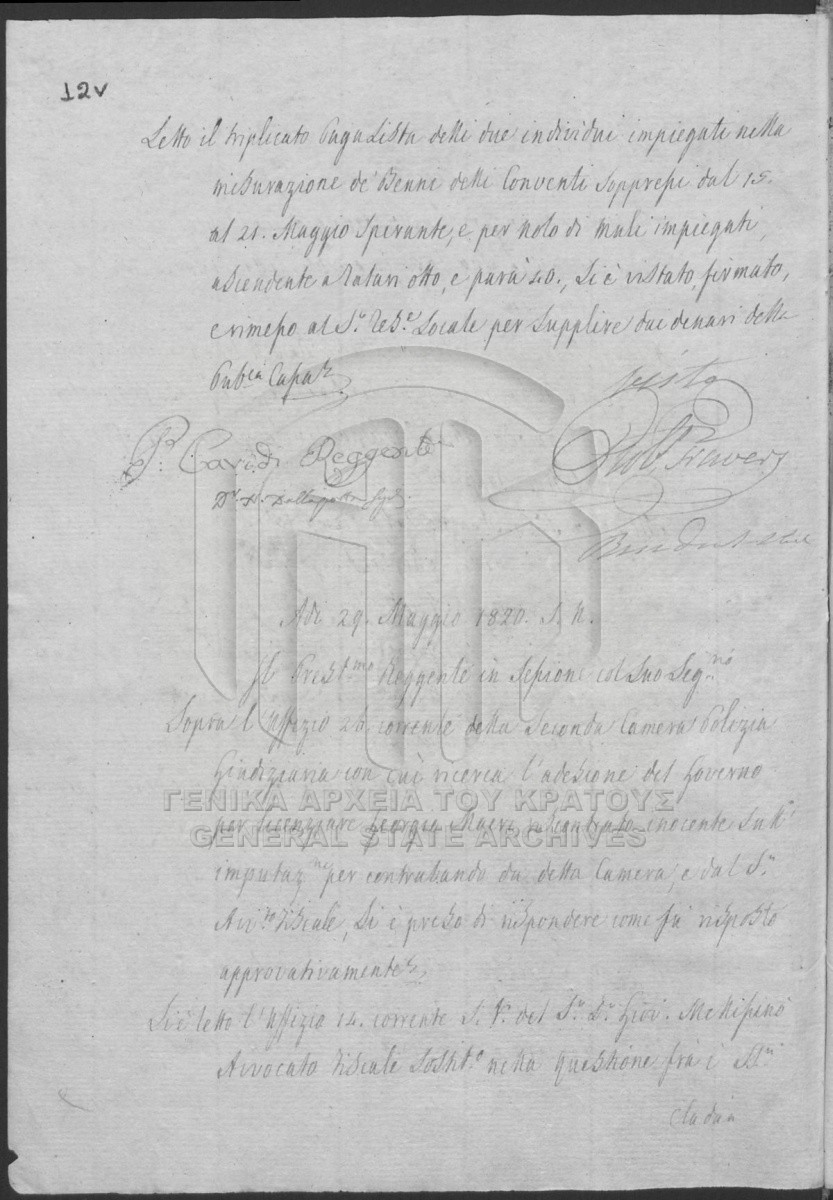 12v
Letto il triplicato Paga Lista delli due individui impiegati nella
misurazione de' Benni delli Conventi soppressi dal 15.
al 21. Maggio spirante, e per nolo di muli impiegati,
ascendente a Talari otto, e parà 40., si è vistato, firmato,
e rimesso al S.r Tes.e Locale per supplire dai denari della
Pub.ca Cassa
visto
P. Cavidi Reggente
Rob.t Travers
Adi 29. Maggio 1820. S. N.
Il Prest.mo Reggente in Sessione col suo Seg.rio
Sopra l'Uffizio 26. corrente della Seconda Camera Polizia
Giudiziaria con cui ricerca l'adesione del Governo
per licenziare Georgio Macri riscontrato inocente sull'
imputaz.ne per contrabando da detta Camera, e dal S.r
Avv.to Fiscale, si è preso di rispondere come fu risposto
approvativamente.
Si è letto l'Uffizio 14. corrente S. V. del S.r D.r Giov. Mellisenò
Avvocato Fiscale Sostit.o nella questione fra i SS.ri